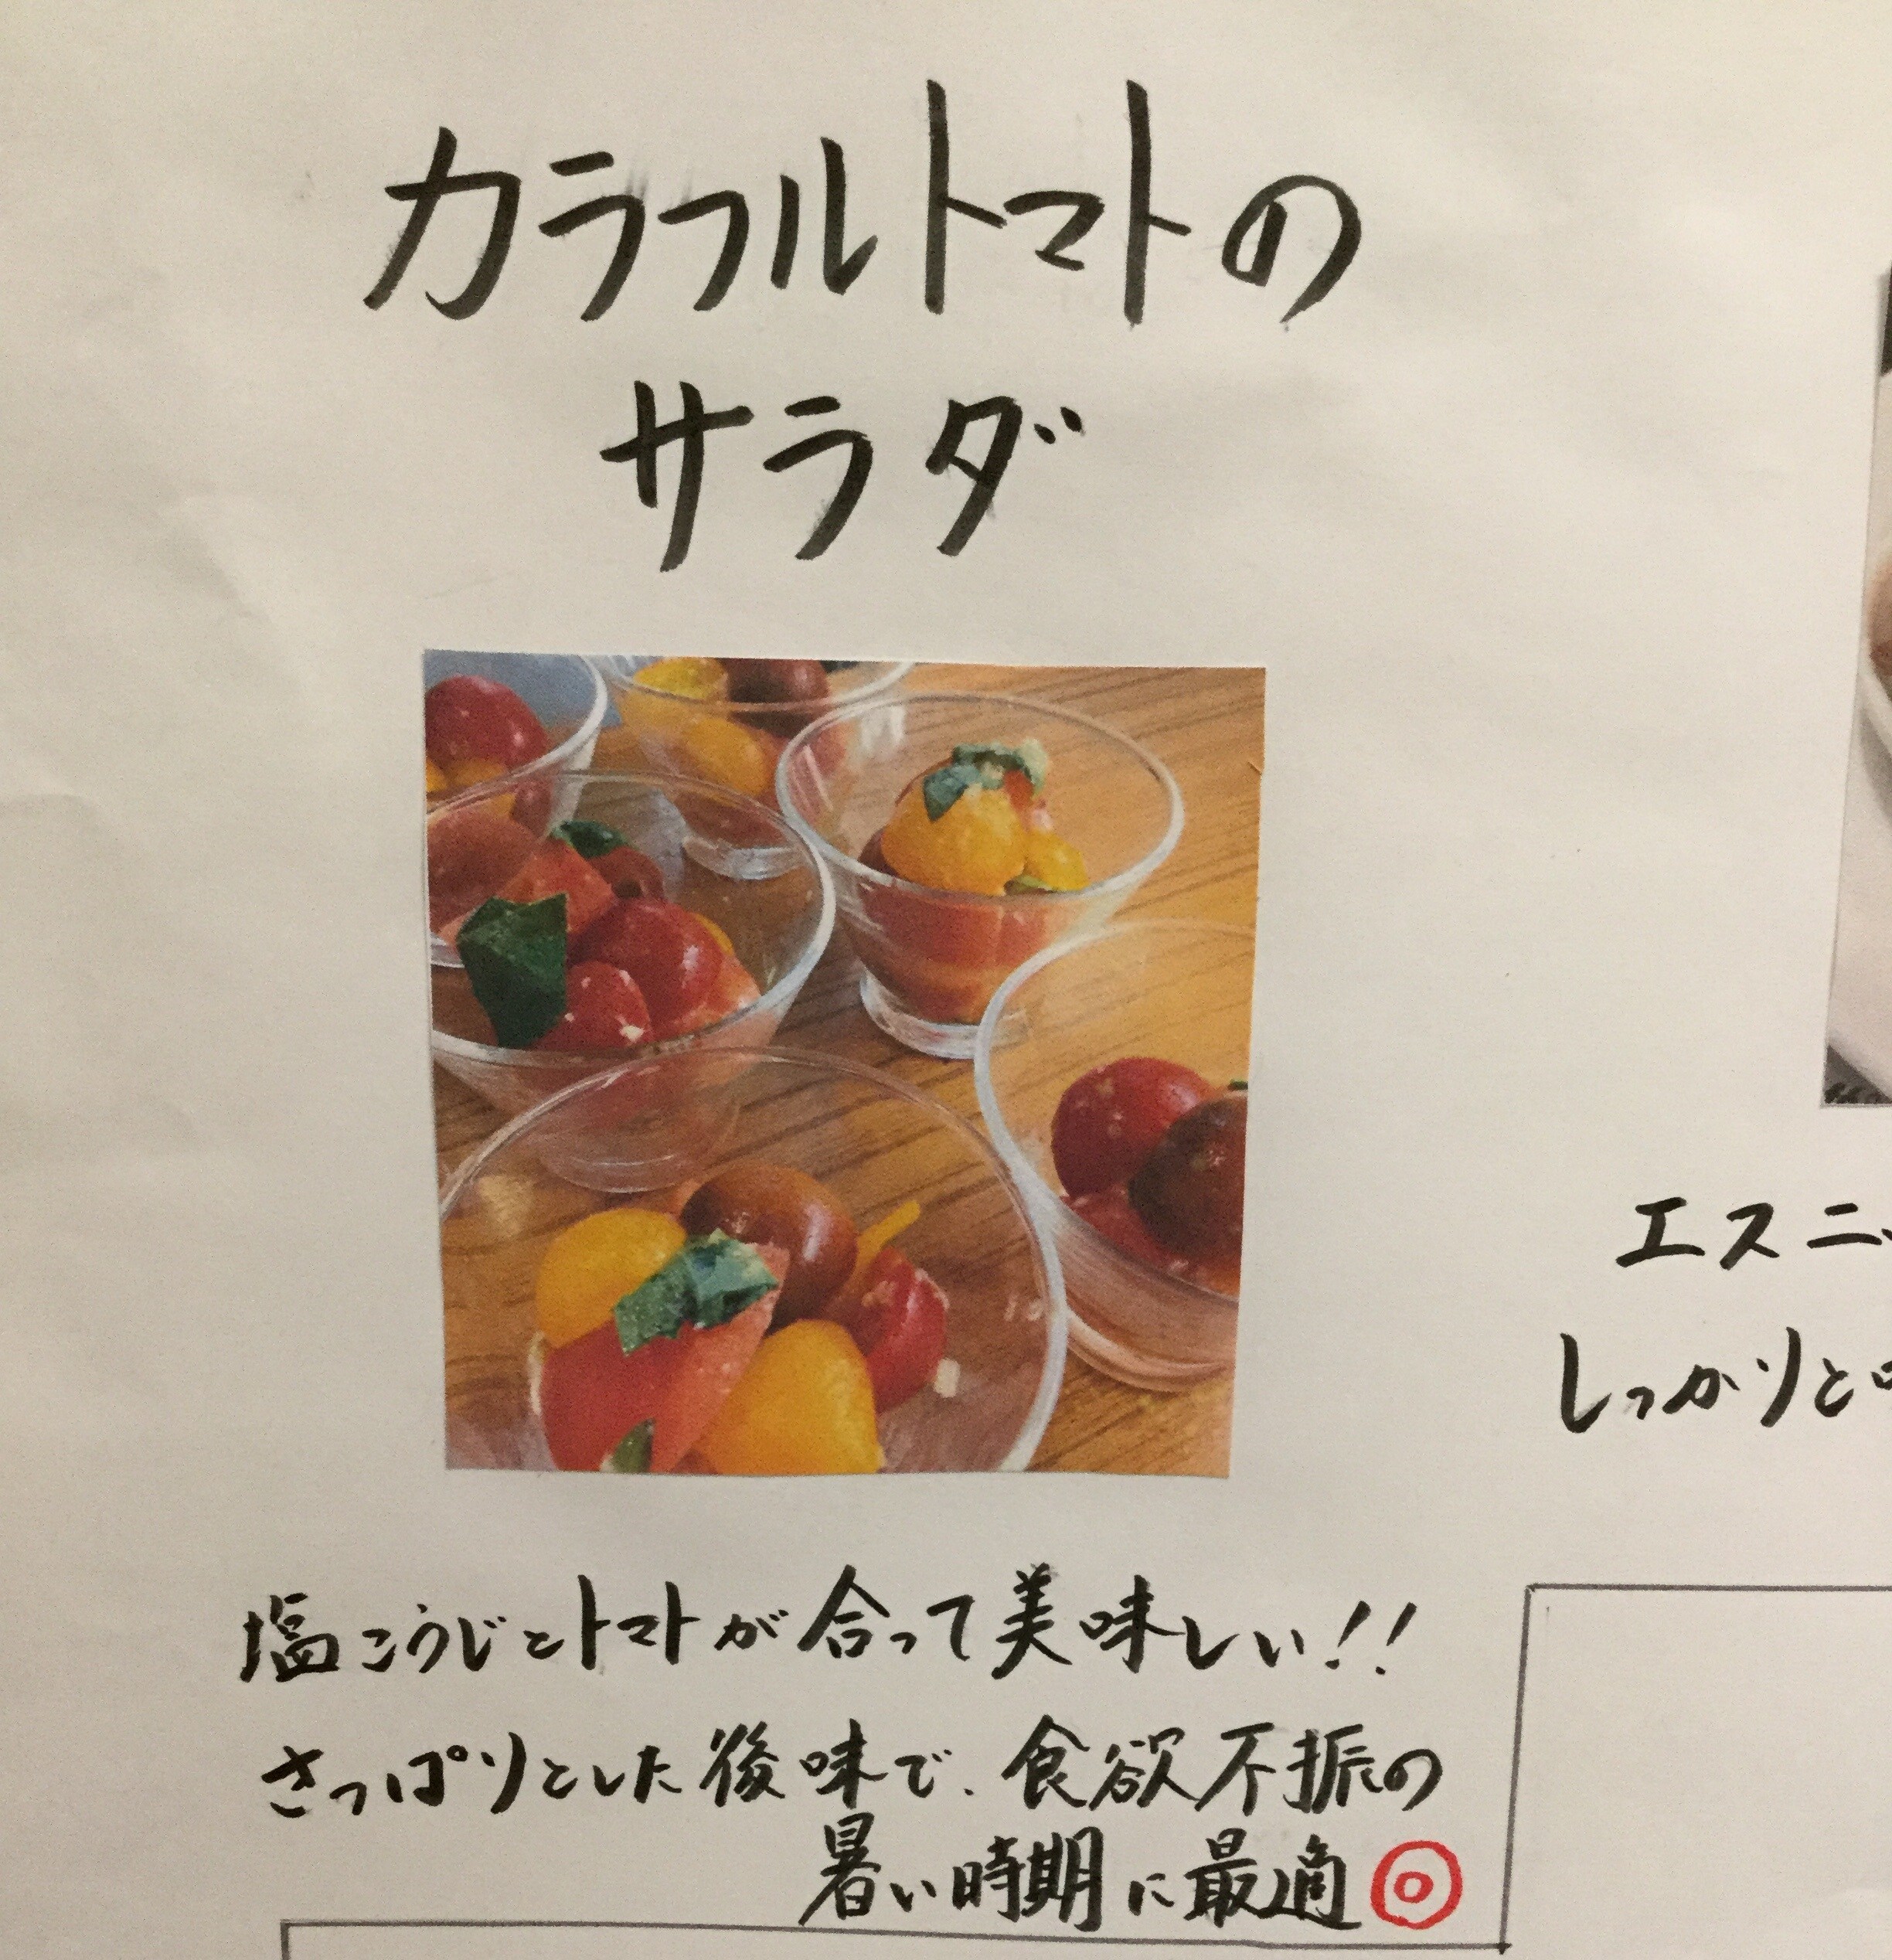 カラフルトマトの
サラダ
塩こうじとトマトが合って美味しい!!
さっぱりとした後味で、食欲不振の
暑い時期に最適◎
エスニッ
しっかりと